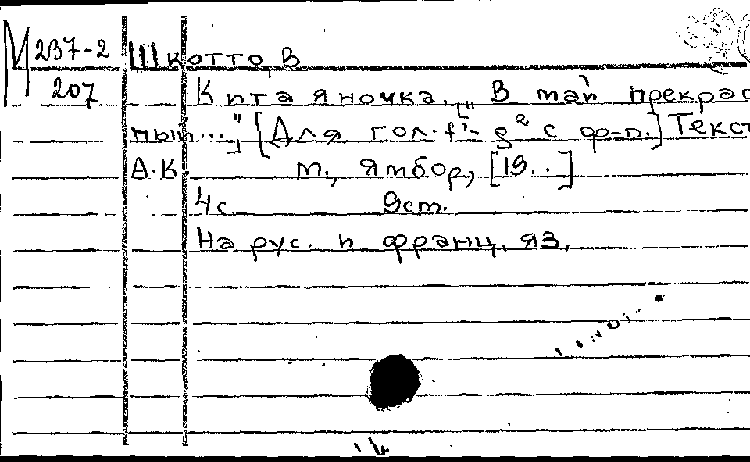 М 237-2 Шкотто, В
207 Китаяночка. „В май прекрас
ный...“ [Для гол. f¹- g² с ф-п.] Текст
А.К. М., Ямбор, [19..]
4с 9ст.
На рус. и франц. яз.